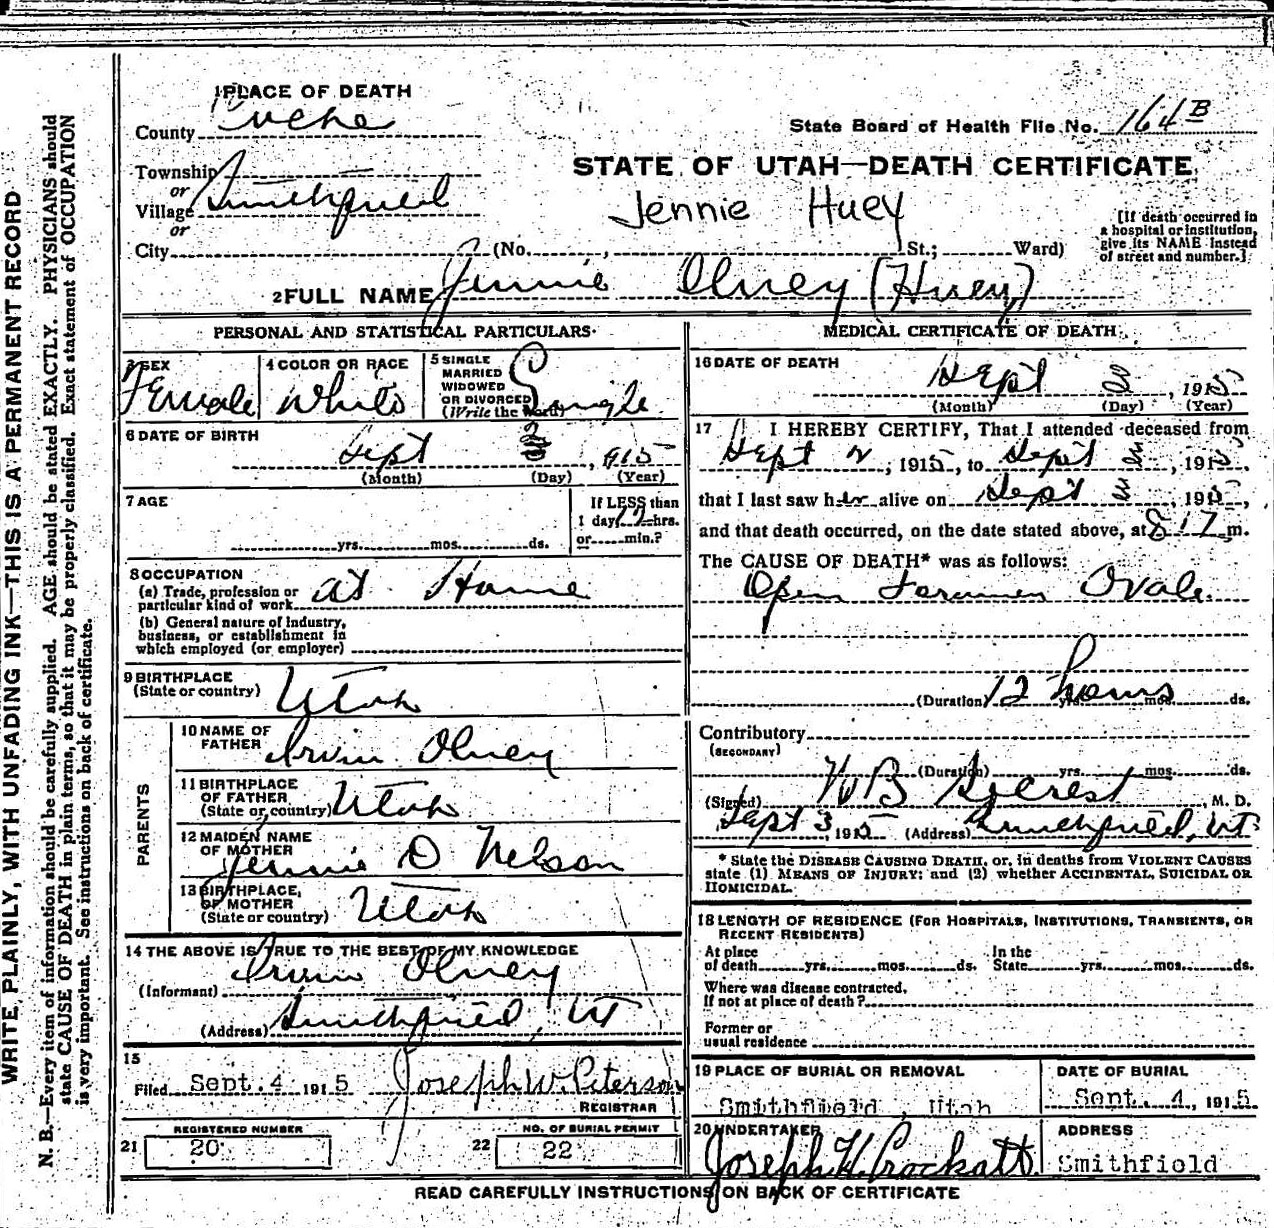 1 PLACE OF DEATH
County Cache
State Board of Health File No. 164 B
Township
or
Village Smithfield
or
STATE OF UTAH—DEATH CERTIFICATE
Jennie Huey
[If death occurred in
a hospital or institution,
give its NAME instead
of street and number.]
City (No. , St.; Ward)
2 FULL NAME Jennie Olney (Huey)
PERSONAL AND STATISTICAL PARTICULARS
3 SEX
Female
4 COLOR OR RACE
White
5 SINGLE
MARRIED
WIDOWED
OR DIVORCED
(Write the word) Single
6 DATE OF BIRTH
Sept , 1915
(Month) (Day) (Year)
7 AGE
yrs. mos. ds.
If LESS than
1 day, 12 hrs.
or min.?
8 OCCUPATION
(a) Trade, profession or
particular kind of work at Home
(b) General nature of industry,
business, or establishment in
which employed (or employer)
9 BIRTHPLACE
(State or country) Utah
PARENTS
10 NAME OF
FATHER Irvin Olney
11 BIRTHPLACE
OF FATHER
(State or country) Utah
12 MAIDEN NAME
OF MOTHER
Jennie D Nelson
13 BIRTHPLACE,
OF MOTHER
(State or country) Utah
14 THE ABOVE IS TRUE TO THE BEST OF MY KNOWLEDGE
(Informant) Irvin Olney
(Address) Smithfield, UT
15
Filed Sept. 4 1915 Joseph W. Peterson
REGISTRAR
REGISTERED NUMBER
21 20
NO. OF BURIAL PERMIT
22 22
MEDICAL CERTIFICATE OF DEATH
16 DATE OF DEATH
Sept , 1915
(Month) (Day) (Year)
17 I HEREBY CERTIFY, That I attended deceased from
Sept 2, 1915, to Sept , 1915,
that I last saw her alive on Sept , 1915,
and that death occurred, on the date stated above, at m.
The CAUSE OF DEATH* was as follows:
Open Foramen Ovale
(Duration) 12 hours yrs. mos. ds.
Contributory
(SECONDARY)
(Duration) yrs. mos. ds.
(Signed) W B Secrest, M. D.
Sept 3, 1915 (Address) Smithfield, UT
* State the DISEASE CAUSING DEATH, or, in deaths from VIOLENT CAUSES
state (1) MEANS OF INJURY; and (2) whether ACCIDENTAL, SUICIDAL OR
HOMICIDAL.
18 LENGTH OF RESIDENCE (FOR HOSPITALS, INSTITUTIONS, TRANSIENTS, OR
RECENT RESIDENTS)
At place
of death yrs. mos. ds.
In the
State yrs. mos. ds.
Where was disease contracted,
if not at place of death?
Former or
usual residence
19 PLACE OF BURIAL OR REMOVAL
Smithfield, Utah
DATE OF BURIAL
Sept. 4, 1915.
20 UNDERTAKER
Joseph H. Crockatt
ADDRESS
Smithfield
READ CAREFULLY INSTRUCTIONS ON BACK OF CERTIFICATE
WRITE PLAINLY, WITH UNFADING INK—THIS IS A PERMANENT RECORD
N. B.—Every item of information should be carefully supplied. AGE should be stated EXACTLY. PHYSICIANS should
state CAUSE OF DEATH in plain terms, so that it may be properly classified. Exact statement of OCCUPATION
is very important. See instructions on back of certificate.